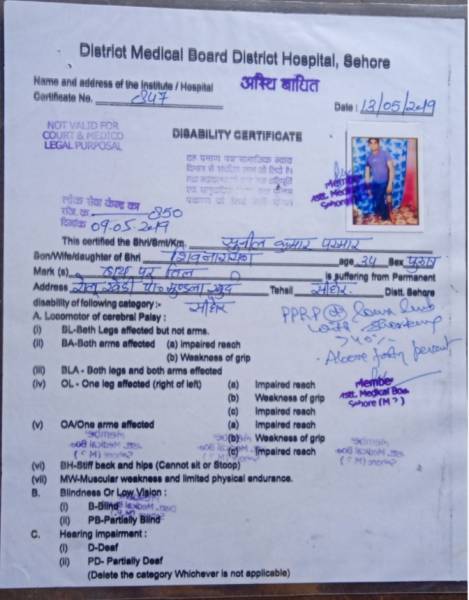 District Medical Board District Hospital, Sehore
Name and address of the Institute / Hospital
अस्थि बाधित
Certificate No. 847
Date : 13/05/2019
NOT VALID FOR
COURT & MEDICO
LEGAL PURPOSAL
DISABILITY CERTIFICATE
लोक सेवा केन्द्र का
रजि. क्र. 850
दिनांक 09.05.2019
Member
This certified the Shri/Smt/Km. सुनील कुमार परमार
Son/Wife/daughter of Shri शिवनारायण age 34 Sex पुरुष
Mark (s) हाथ पर तिल is suffering from Permanent
Address Tehsil सीहोर Distt. Sehore
disability of following category:- सीहोर
PPRP lower limb
with
>40%
Above forty percent
Member
Asstt. Medical Boa
Sehore (M P)
A. Locomotor of cerebral Palsy :
(i) BL-Both Legs affected but not arms.
(ii) BA-Both arms affected (a) impaired reach
(b) Weakness of grip
(iii) BLA - Both legs and both arms affected
(iv) OL - One leg affected (right of left) (a) Impaired reach
(b) Weakness of grip
(c) Impaired reach
(v) OA/One arms affected (a) Impaired reach
(b) Weakness of grip
(c) Impaired reach
(vi) BH-Stiff back and hips (Cannot sit or Stoop)
(vii) MW-Muscular weakness and limited physical endurance.
B. Blindness Or Low Vision :
(i) B-Blind
(ii) PB-Partially Blind
C. Hearing impairment :
(i) D-Deaf
(ii) PD- Partially Deaf
(Delete the category Whichever is not applicable)